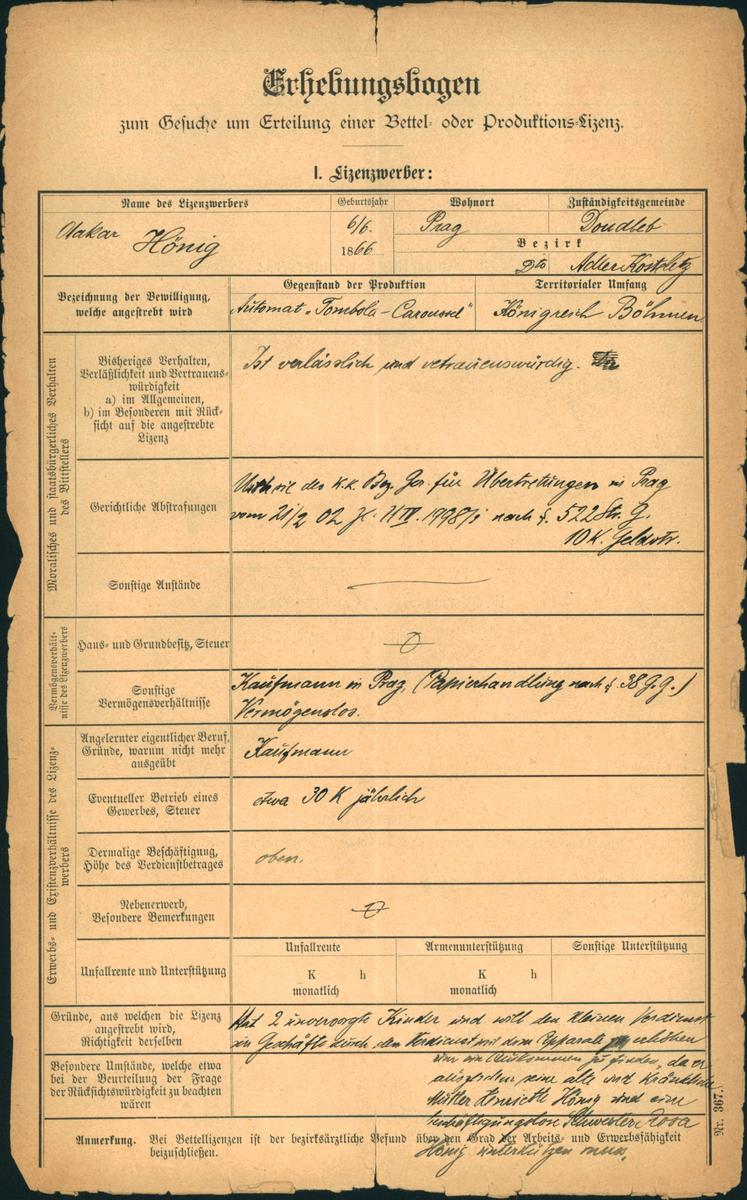 Erhebungsbogen
zum Gesuche um Erteilung einer Bettel- oder Produktions-Lizenz.
I. Lizenzwerber:
Name des Lizenzwerbers
Geburtsjahr
Wohnort
Zuständigkeitsgemeinde
Hönig
6/6.
1866
Prag
Doudleb
Bezirk
Dto
Adler Kosteletz
Bezeichnung der Bewilligung,
welche angestrebt wird
Gegenstand der Produktion
Territorialer Umfang
Automat „Tombola-Caroussel"
Königreich Böhmen
Moralisches und staatsbürgerliches Verhalten
des Bittstellers
Bisheriges Verhalten,
Verläßlichkeit und Vertrauens-
würdigkeit
a) im Allgemeinen,
b) im Besonderen mit Rück-
sicht auf die angestrebte
Lizenz
Ist verlässlich und vetrauenswürdig.
Gerichtliche Abstrafungen
des k.k. Bez. für Übertretungen in Prag
vom 21/2 02 nach §. 522 Str. G.
10 K. Geldstr.
Sonstige Anstände
Vermögensverhält-
nisse des Lizenzwerbers
Haus- und Grundbesitz, Steuer
Sonstige
Vermögensverhältnisse
Kaufmann in Prag (Papierhandlung nach § 38 G.G.)
Vermögenslos.
Erwerbs- und Existenzverhältnisse des Lizenz-
werbers
Angelernter eigentlicher Beruf,
Gründe, warum nicht mehr
ausgeübt
Kaufmann
Eventueller Betrieb eines
Gewerbes, Steuer
etwa 30 K jährlich
Dermalige Beschäftigung,
Höhe des Verdienstbetrages
oben.
Nebenerwerb,
Besondere Bemerkungen
Unfallrente und Unterstützung
Unfallrente
Armenunterstützung
Sonstige Unterstützung
K h
monatlich
K h
monatlich
Gründe, aus welchen die Lizenz
angestrebt wird,
Richtigkeit derselben
Hat 2 unversorgte Kinder und will den kleinen Verdienst
im Geschäfte durch den Verdienst mit dem Apparate erhöhen
Besondere Umstände, welche etwa
bei der Beurteilung der Frage
der Rücksichtswürdigkeit zu beachten
wären
um ein Auskommen zu finden, da er
ausserdem seine alte und kränkliche
Mutter Henriette Hönig und eine
beschäftigungslose Schwester Rosa
Hönig unterstützen muss.
Anmerkung. Bei Bettellizenzen ist der bezirksärztliche Befund über den Grad der Arbeits- und Erwerbsfähigkeit
beizuschließen.
Nr. 367.